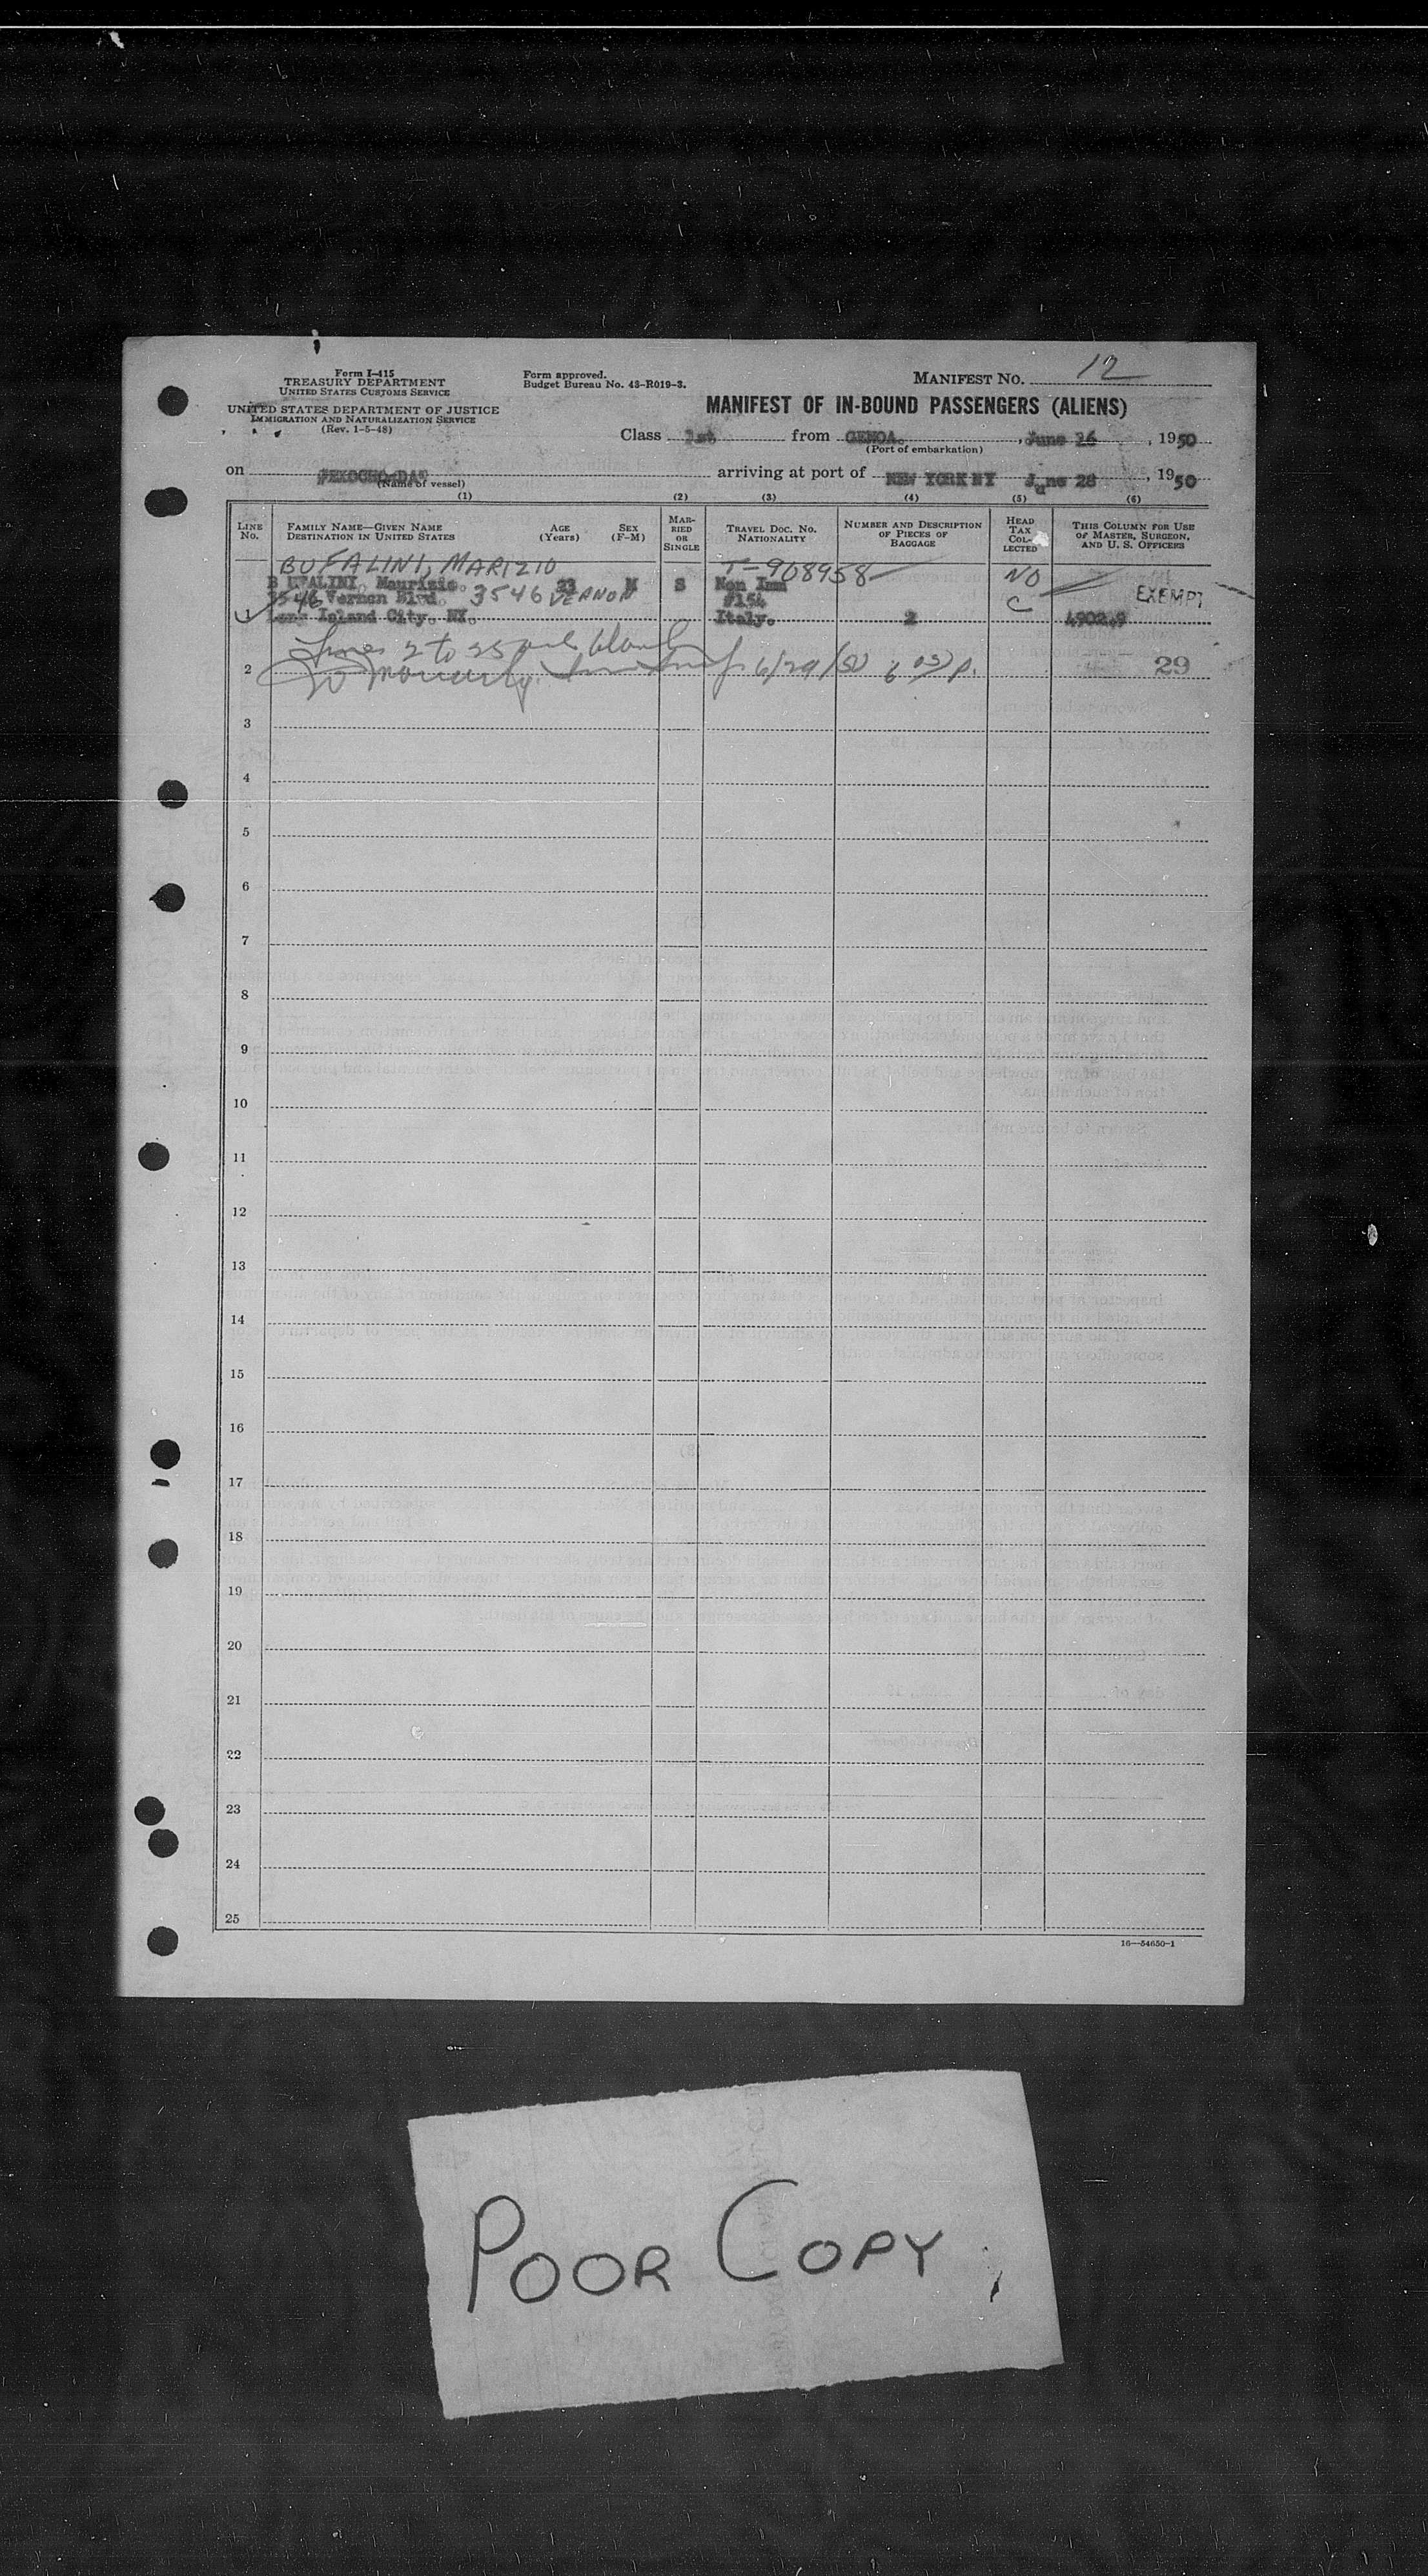 Form I-415
TREASURY DEPARTMENT
UNITED STATES CUSTOMS SERVICE
UNITED STATES DEPARTMENT OF JUSTICE
IMMIGRATION AND NATURALIZATION SERVICE
(Rev. 1-5-48)
Form approved.
Budget Bureau No. 43-R019-3.
MANIFEST NO. 12
MANIFEST OF IN-BOUND PASSENGERS (ALIENS)
Class 1st from GENOA. , June 26 , 1950
(Port of embarkation)
on arriving at port of NEW YORK NY June 28 , 1950
(Name of vessel)
(1) (2) (3) (4) (5) (6)
LINE No.
FAMILY NAME—GIVEN NAME
DESTINATION IN UNITED STATES
AGE (Years)
SEX (F-M)
MARRIED OR SINGLE
TRAVEL DOC. NO.
NATIONALITY
NUMBER AND DESCRIPTION OF PIECES OF BAGGAGE
HEAD TAX COLLECTED
THIS COLUMN FOR USE OF MASTER, SURGEON, AND U. S. OFFICERS
BUFALINI, MARIZIO T-908958 NO
B UFALINI, Maurizio. 23 M S Non Imm
3546 Vernon Blvd. 3546 VERNON #154 C EXEMPT
1 Long Island City. NY. Italy. 2 4902.9
Lines 2 to 25 are blank
2 6/29/50 29
3
4
5
6
7
8
9
10
11
12
13
14
15
16
17
18
19
20
21
22
23
24
25
16—54650-1
POOR COPY